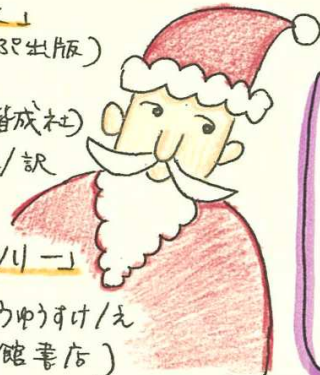 」
ぷ出版)
偕成社)
/訳
ツリー」
うゆうすけ/え
館書店)